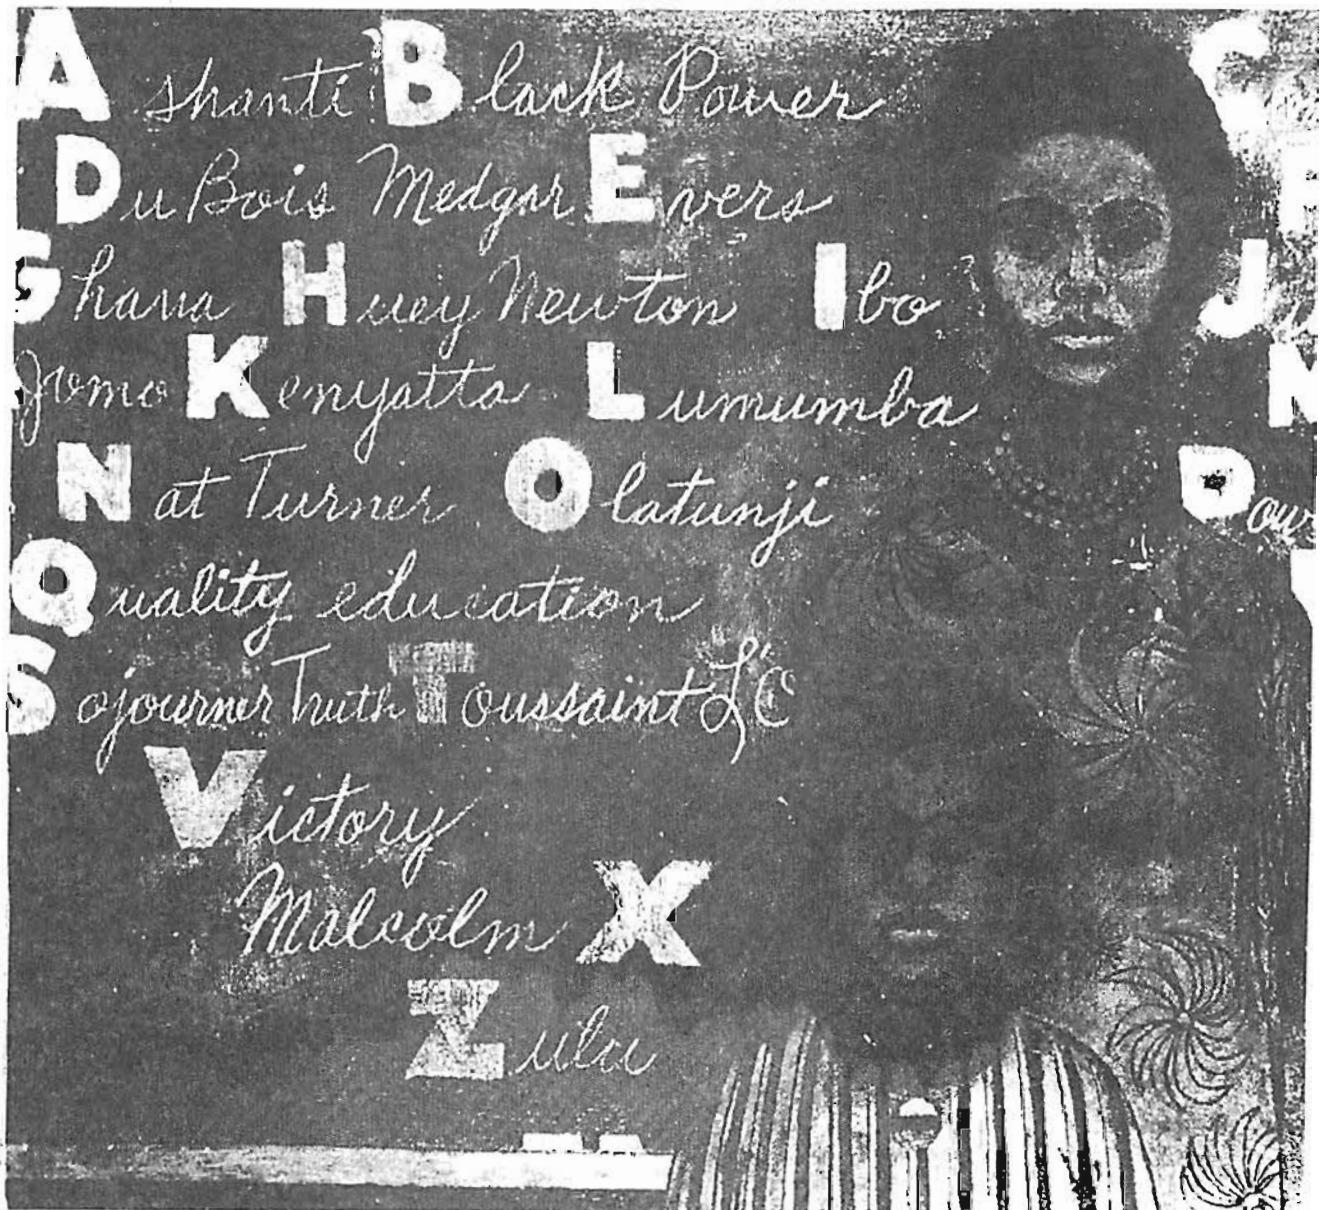 Ashanti Black Power C
DuBois Medgar Evers F
Ghana Huey Newton Ibo
Jomo Kenyatta Lumumba
Nat Turner Olatunji
Quality education
Sojourner Truth Toussaint L'O
Victory
Malcolm X
Zulu